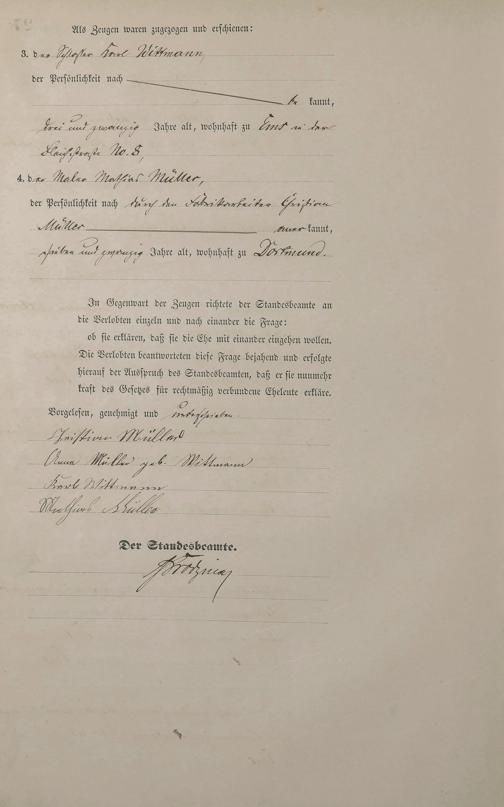 Als Zeugen waren zugezogen und erschienen:
3. der Schlosser Karl Wittmann,
der Persönlichkeit nach
be kannt,
drei und zwanzig Jahre alt, wohnhaft zu Ems in der
No. 5,
4. der Maler Mathias Müller,
der Persönlichkeit nach durch den Fabrikarbeiter Christian
Müller aner kannt,
sieben und zwanzig Jahre alt, wohnhaft zu Dortmund.
In Gegenwart der Zeugen richtete der Standesbeamte an
die Verlobten einzeln und nach einander die Frage:
ob sie erklären, daß sie die Ehe mit einander eingehen wollen.
Die Verlobten beantworteten diese Frage bejahend und erfolgte
hierauf der Ausspruch des Standesbeamten, daß er sie nunmehr
kraft des Gesetzes für rechtmäßig verbundene Eheleute erkläre.
Vorgelesen, genehmigt und unterschrieben
Christian Müller
Anna Müller geb. Wittmann
Karl Wittmann
Mathias Müller
Der Standesbeamte.